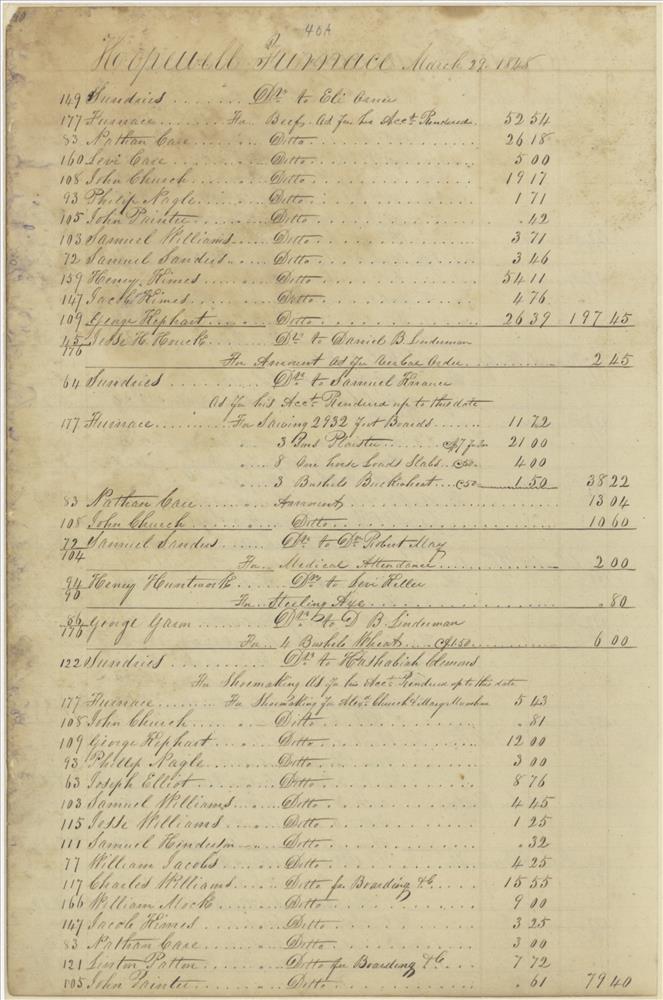 40A
Hopewell Furnace March 29. 1845
149 Sundries Drs to Eli
177 Furnace For Beef, As per his Acct Rendered 52 54
83 Nathan Care Ditto 26 18
160 Levi Care Ditto 5 00
108 John Church Ditto 19 17
93 Philip Nagle Ditto 1 71
105 John Painter Ditto . 42
103 Samuel Williams Ditto 3 71
72 Samuel Sanders Ditto 3 46
159 Henry Himes Ditto 54 11
147 Jacob Himes Ditto 4 76
109 George Hephart Ditto 26 39 197 45
45/176 Jesse H Houck Dr to Daniel B. Linderman
For Amount As per Verbal Order 2 45
64 Sundries Drs to Samuel
As per his Acct Rendered up to this date
177 Furnace For Sawing 2932 feet Boards 11 72
" 3 Tons Plaster @ $7 21 00
" 8 One horse Loads Slabs c50 4 00
" 3 Bushels Buckwheat c50 1 50 38 22
83 Nathan Care " Amount 13 04
108 John Church " Ditto 10 60
72/104 Samuel Sanders Dr to Dr Robert May
For Medical Attendance 2 00
94/90 Henry Huntwork Dr to Levi Hiller
For Steeling Axe . 80
86/176 George Garm Dr to D B. Linderman
For 4 Bushels Wheat @ $1.50 6 00
122 Sundries Drs to Hashabiah Clemens
For Shoemaking As per his Acct Rendered up to this date
177 Furnace For Shoemaking for Church & Mary 5 43
108 John Church " Ditto . 81
109 George Hephart " Ditto 12 00
93 Phillip Nagle " Ditto 3 00
63 Joseph Elliot " Ditto 8 76
103 Samuel Williams " Ditto 4 45
115 Jesse Williams " Ditto 1 25
111 Samuel Henderson " Ditto . 32
77 William Jacobs " Ditto 4 25
117 Charles Williams " Ditto for Boarding &c 15 55
166 William Mock " Ditto 9 00
147 Jacob Himes " Ditto 3 25
83 Nathan Care " Ditto 3 00
121 Linton Patton " Ditto for Boarding &c 7 72
105 John Painter " Ditto . 61 79 40